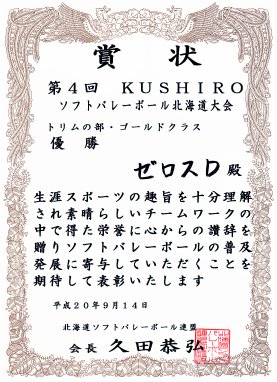 賞状
第4回 KUSHIRO
ソフトバレーボール北海道大会
トリムの部・ゴールドクラス
優勝
ゼロスD殿
生涯スポーツの趣旨を十分理解
され素晴らしいチームワークの
中で得た栄誉に心からの讃辞を
贈りソフトバレーボールの普及
発展に寄与していただくことを
期待して表彰いたします
平成20年9月14日
北海道ソフトバレーボール連盟
会長 久田恭弘